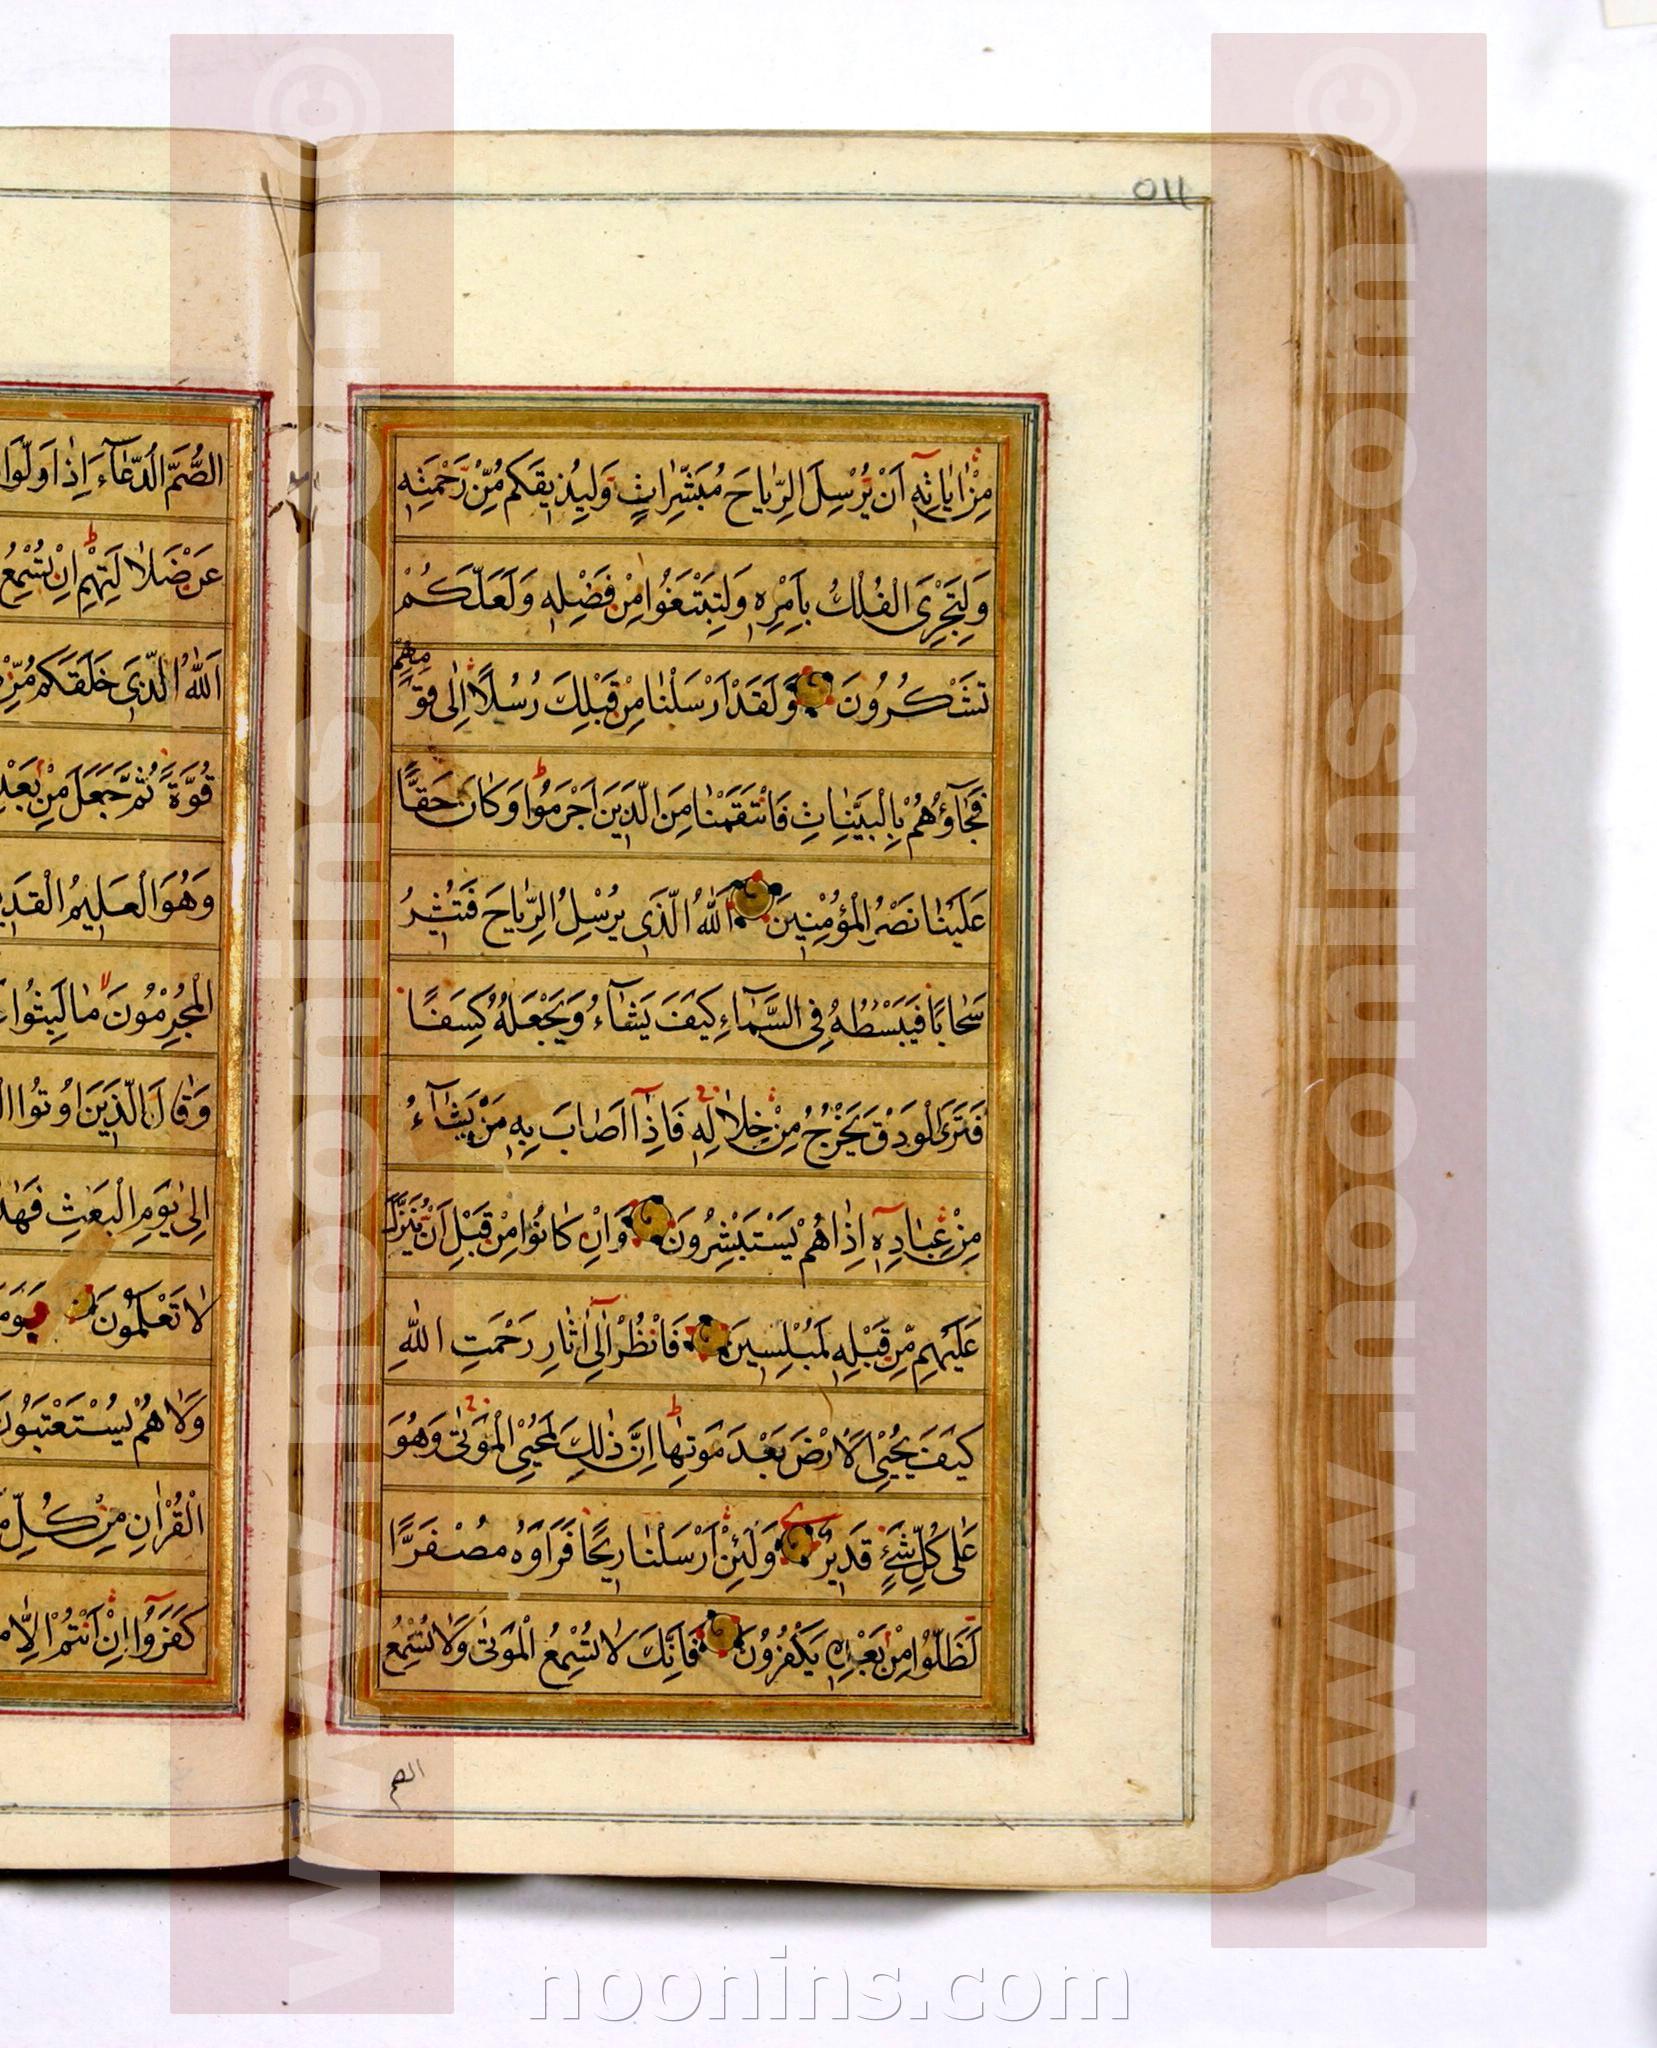 ٥١١
مِنْ اٰيَاتِهِ اَنْ يُرْسِلَ الرِّيَاحَ مُبَشِّرَاتٍ وَلِيُذِيقَكُمْ مِنْ رَحْمَتِهِ
وَلِتَجْرِيَ الْفُلْكُ بِاَمْرِهِ وَلِتَبْتَغُوا مِنْ فَضْلِهِ وَلَعَلَّكُمْ
تَشْكُرُونَ وَلَقَدْ اَرْسَلْنَا مِنْ قَبْلِكَ رُسُلًا اِلٰى قَوْمِهِمْ
فَجَآؤُهُمْ بِالْبَيِّنَاتِ فَانْتَقَمْنَا مِنَ الَّذِينَ اَجْرَمُوا وَكَانَ حَقًّا
عَلَيْنَا نَصْرُ الْمُؤْمِنِينَ اَللّٰهُ الَّذِي يُرْسِلُ الرِّيَاحَ فَتُثِيرُ
سَحَابًا فَيَبْسُطُهُ فِي السَّمَآءِ كَيْفَ يَشَآءُ وَيَجْعَلُهُ كِسَفًا
فَتَرَى الْوَدْقَ يَخْرُجُ مِنْ خِلَالِهِ فَاِذَآ اَصَابَ بِهِ مَنْ يَشَآءُ
مِنْ عِبَادِهِ اِذَا هُمْ يَسْتَبْشِرُونَ وَاِنْ كَانُوا مِنْ قَبْلِ اَنْ يُنَزَّلَ
عَلَيْهِمْ مِنْ قَبْلِهِ لَمُبْلِسِينَ فَانْظُرْ اِلٰٓى اٰثَارِ رَحْمَتِ اللّٰهِ
كَيْفَ يُحْيِي الْاَرْضَ بَعْدَ مَوْتِهَا اِنَّ ذٰلِكَ لَمُحْيِي الْمَوْتٰى وَهُوَ
عَلٰى كُلِّ شَيْءٍ قَدِيرٌ وَلَئِنْ اَرْسَلْنَا رِيحًا فَرَاَوْهُ مُصْفَرًّا
لَظَلُّوا مِنْ بَعْدِهِ يَكْفُرُونَ فَاِنَّكَ لَا تُسْمِعُ الْمَوْتٰى وَلَا تُسْمِعُ
الصم
الصُّمَّ الدُّعَآءَ اِذَا وَلَّوْا
عَنْ ضَلَالَتِهِمْ اِنْ تُسْمِعُ
اَللّٰهُ الَّذِي خَلَقَكُمْ مِنْ
قُوَّةً ثُمَّ جَعَلَ مِنْ بَعْدِ
وَهُوَ الْعَلِيمُ الْقَدِيرُ
الْمُجْرِمُونَ مَا لَبِثُوا
وَقَالَ الَّذِينَ اُوتُوا
اِلٰى يَوْمِ الْبَعْثِ فَهٰذَا
لَا تَعْلَمُونَ
وَلَا هُمْ يُسْتَعْتَبُونَ
الْقُرْاٰنِ مِنْ كُلِّ
كَفَرُوٓا اِنْ اَنْتُمْ اِلَّا
© www.noonins.com
© www.noonins.com
noonins.com